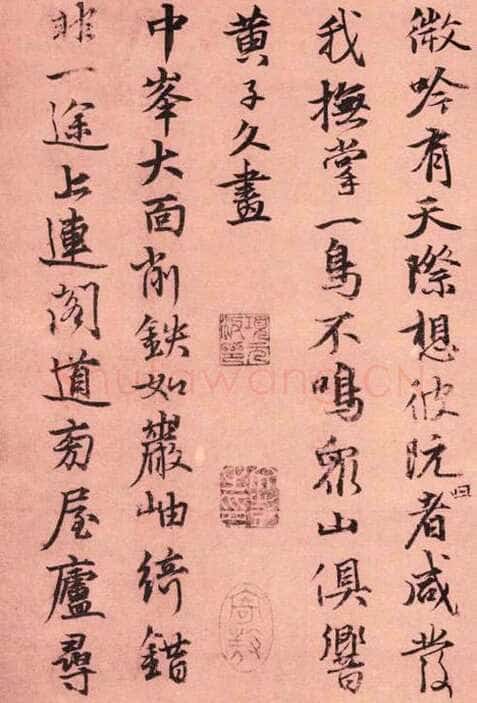 微吟有天際想彼阮者咸發
我撫掌一鳥不鳴衆山俱響
黄子久畫
中峯大面削鉄如巖岫綺錯
非一途上連閣道旁屋廬尋